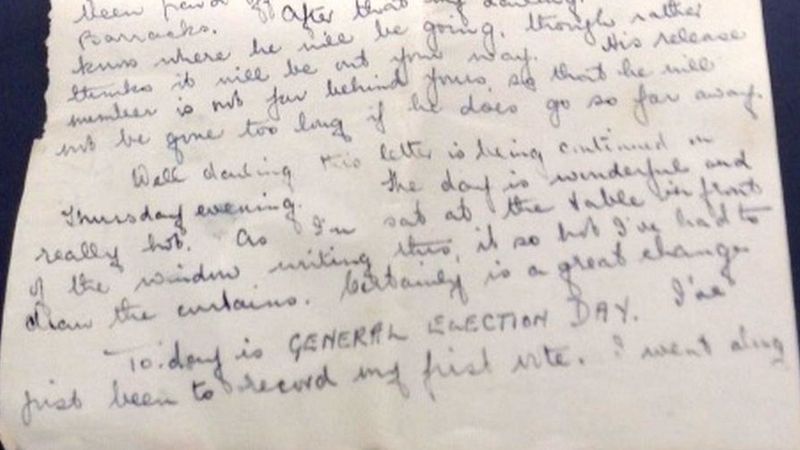 been
After that my darling
Barracks.
know where he will be going, though rather
thinks it will be out your way. His release
number is not far behind yours, so that he will
not be gone too long if he does go so far away.
Well darling this letter is being continued on
Thursday evening. The day is wonderful and
really hot. As I'm sat at the table in front
of the window writing this, it so hot I've had to
draw the curtains. Certainly is a great change
To-day is GENERAL ELECTION DAY. I've
just been to record my first vote. I went along